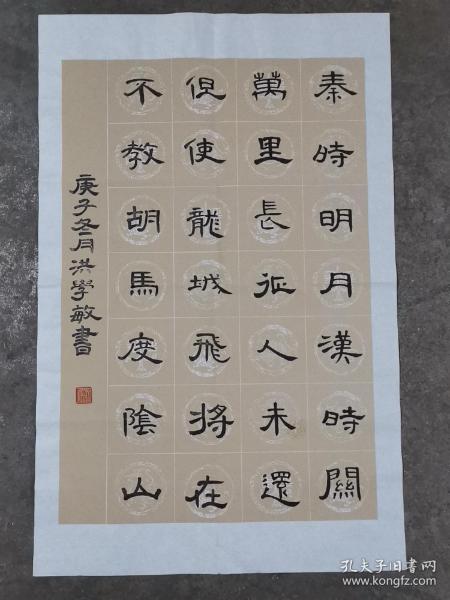 秦時明月漢時關
萬里長征人未還
但使龍城飛將在
不教胡馬度陰山
庚子冬月洪學敏書
孔夫子旧书网
www.kongfz.com